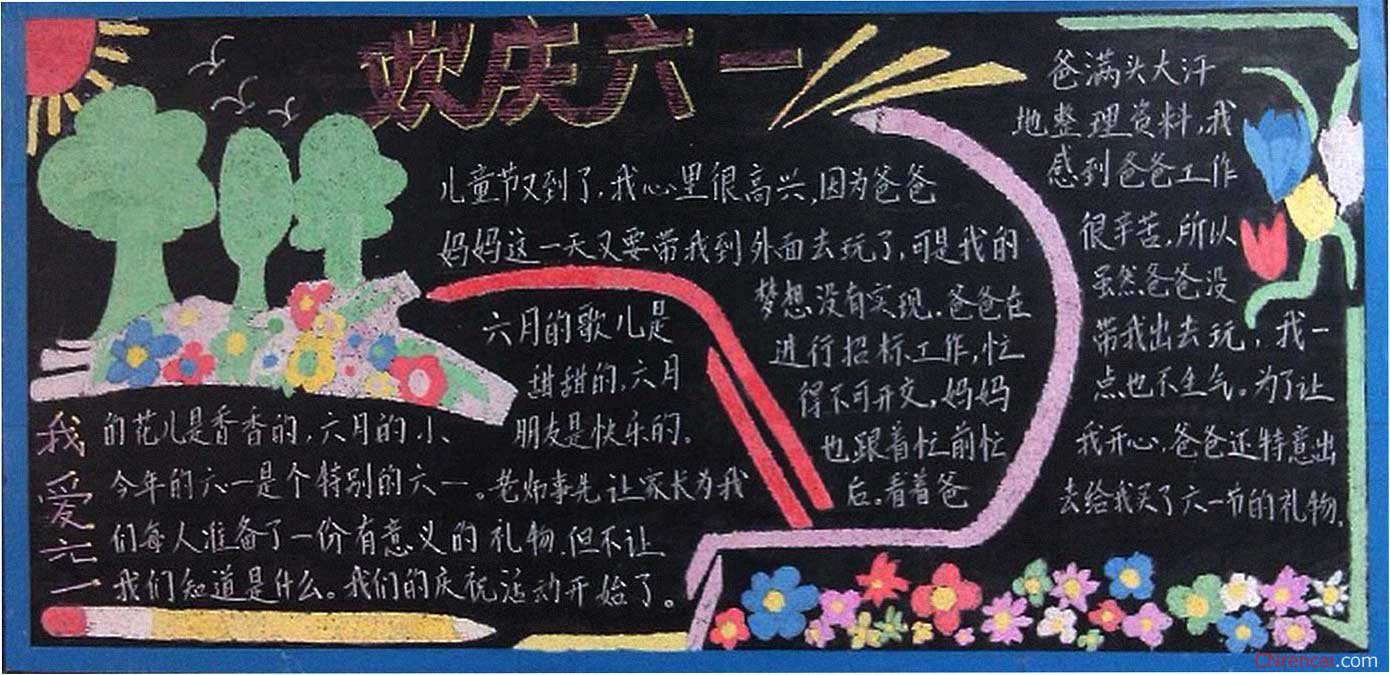 欢庆六一
儿童节又到了,我心里很高兴,因为爸爸
妈妈这一天又要带我到外面去玩了,可是我的
梦想没有实现.爸爸在
进行招标工作,忙
得不可开交,妈妈
也跟着忙前忙
后。看着爸
爸满头大汗
地整理资料,我
感到爸爸工作
很辛苦,所以
虽然爸爸没
带我出去玩,我一
点也不生气。为了让
我开心,爸爸还特意出
去给我买了六一节的礼物.
我爱六一
六月的歌儿是
甜甜的,六月
的花儿是香香的,六月的小
朋友是快乐的。
今年的六一是个特别的六一。老师事先让家长为我
们每人准备了一份有意义的礼物.但不让
我们知道是什么。我们的庆祝活动开始了。
CNrencai.com